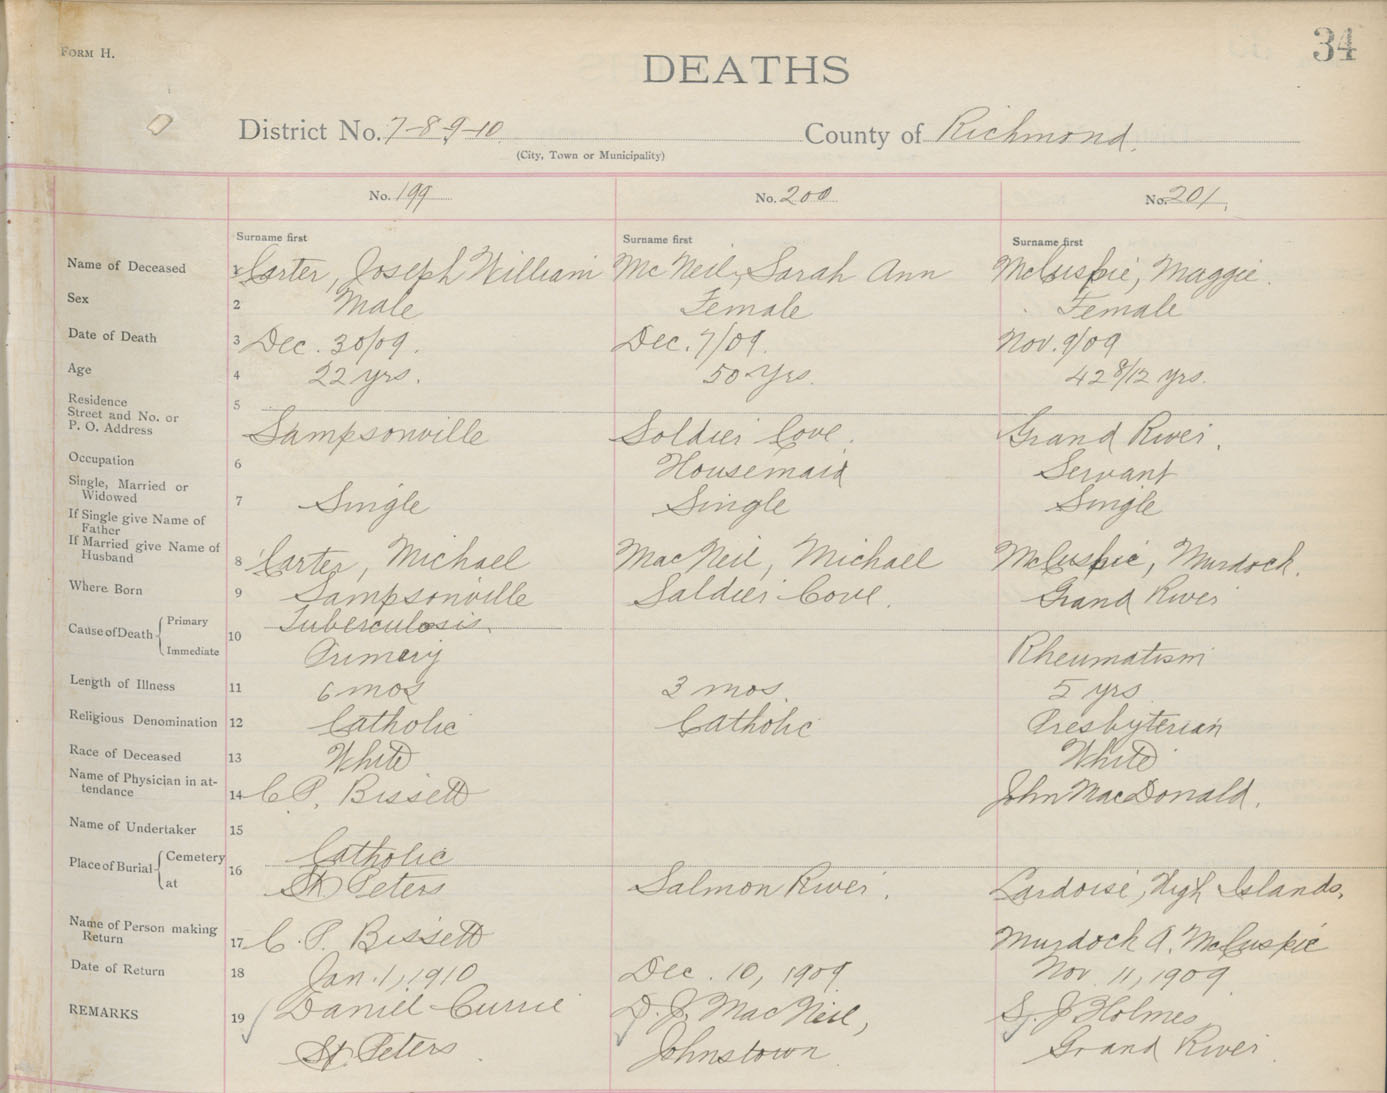 FORM H.
34
DEATHS
District No. 7-8-9-10 County of Richmond.
(City, Town or Municipality)
No. 199 No. 200 No. 201.
Surname first Surname first Surname first
Name of Deceased 1 Carter, Joseph William McNeil, Sarah Ann McCuspie, Maggie.
Sex 2 Male Female Female
Date of Death 3 Dec. 30/09. Dec. 7/09. Nov. 9/09
Age 4 22 yrs. 50 Yrs. 42 8/12 yrs.
Residence
Street and No. or
P. O. Address 5 Sampsonville Soldier Cove. Grand River.
Occupation 6 Housemaid Servant
Single, Married or
Widowed 7 Single Single Single
If Single give Name of
Father
If Married give Name of
Husband 8 Carter, Michael MacNeil, Michael McCuspie, Murdock.
Where Born 9 Sampsonville Soldier Cove. Grand River
Cause of Death Primary 10 Tuberculosis.
Immediate Primary Rheumatism
Length of Illness 11 6 mos 3 mos. 5 yrs
Religious Denomination 12 Catholic Catholic Presbyterian
Race of Deceased 13 White White
Name of Physician in at-
tendance 14 C P. Bissett John MacDonald.
Name of Undertaker 15
Place of Burial Cemetery 16 Catholic
at St Peters Salmon River. Lardoise, High Islands.
Name of Person making
Return 17 C. P. Bissett Murdock A. McCuspie
Date of Return 18 Jan. 1, 1910 Dec. 10, 1909. Nov. 11, 1909
REMARKS 19 Daniel Currie D. J. MacNeil, S. J Holmes
St. Peters. Johnstown Grand River.